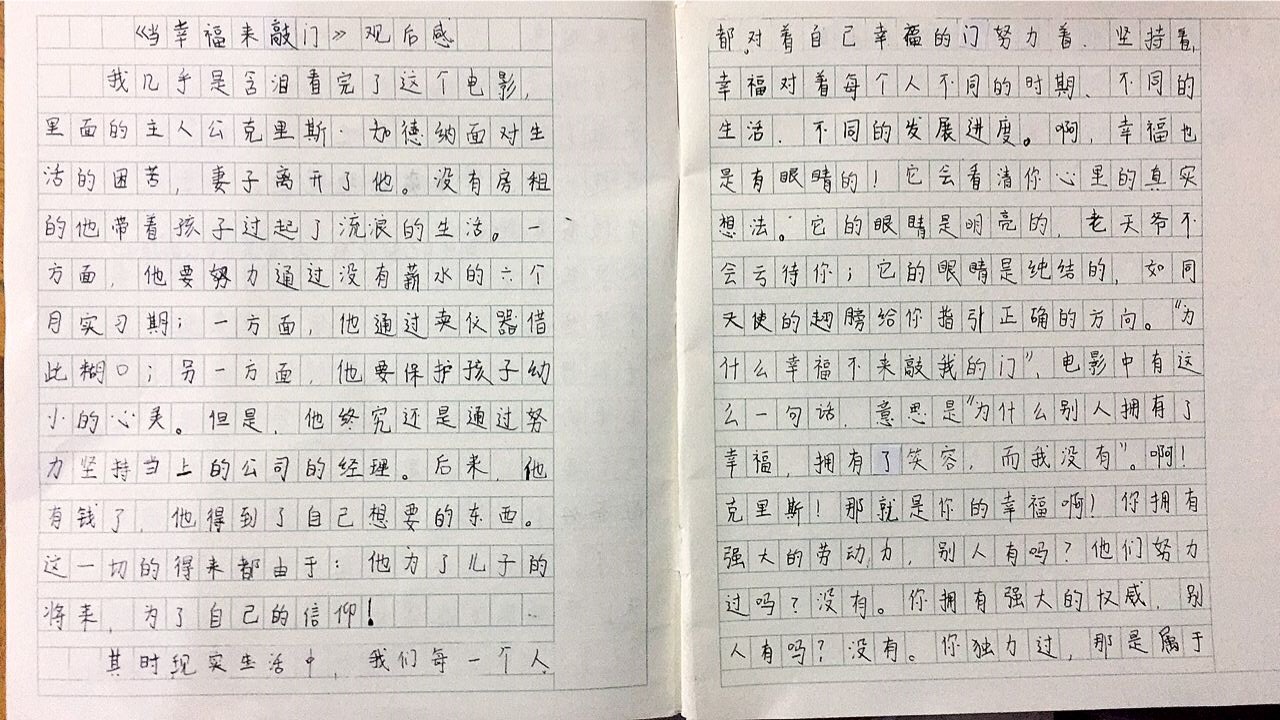 《当幸福来敲门》观后感
我几乎是含泪看完了这个电影,
里面的主人公克里斯·加德纳面对生
活的困苦,妻子离开了他。没有房租
的他带着孩子过起了流浪的生活。一
方面,他要努力通过没有薪水的六个
月实习期;一方面,他通过卖仪器借
此糊口;另一方面,他要保护孩子幼
小的心灵。但是,他终究还是通过努
力坚持当上的公司的经理。后来,他
有钱了,他得到了自己想要的东西。
这一切的得来都由于:他为了儿子的
将来,为了自己的信仰!
其时现实生活中,我们每一个人
都对着自己幸福的门努力着、坚持着,
幸福对着每个人不同的时期、不同的
生活、不同的发展进度。啊,幸福也
是有眼睛的!它会看清你心里的真实
想法。它的眼睛是明亮的,老天爷不
会亏待你;它的眼睛是纯结的,如同
天使的翅膀给你指引正确的方向。“为
什么幸福不来敲我的门”,电影中有这
么一句话,意思是“为什么别人拥有了
幸福,拥有了笑容,而我没有”。啊!
克里斯!那就是你的幸福啊!你拥有
强大的劳动力,别人有吗?他们努力
过吗?没有。你拥有强大的权威,别
人有吗?没有。你独力过,那是属于